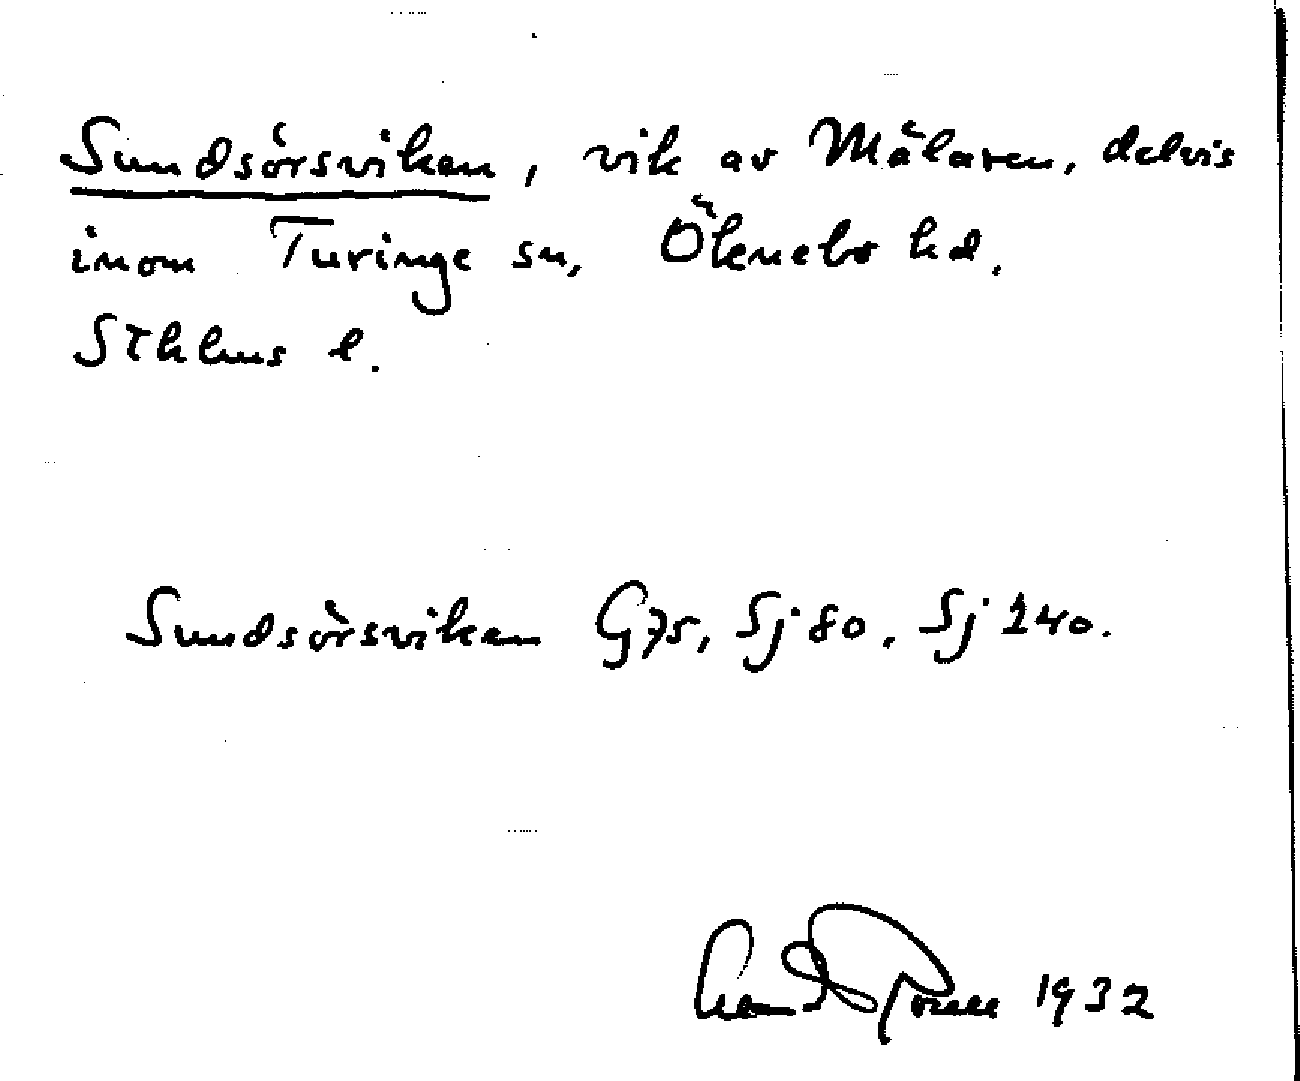 Sundsörsviken, vik av Mälaren, delvis
inom Turinge sn, Öknebo hd.
Sthlms l.
Sundsörsviken G75, Sj 80, Sj 240.
1932